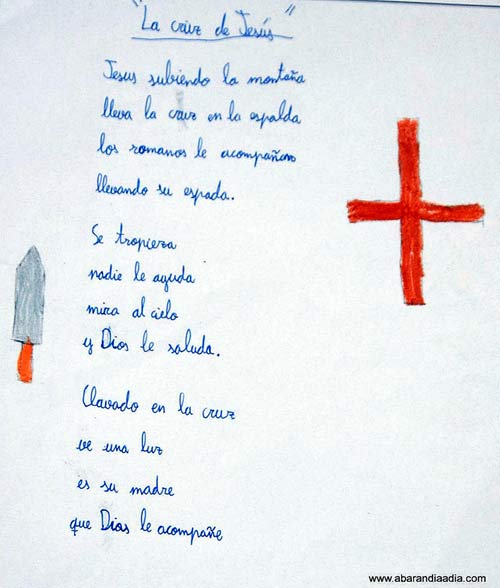 "La cruz de Jesús"
Jesus subiendo la montaña
lleva la cruz en la espalda
los romanos le acompañaron
llevando su espada.
Se tropieza
nadie le ayuda
mira al cielo
y Dios le saluda.
Clavado en la cruz
ve una luz
es su madre
que Dios le acompañe
www.abarandiaadia.com